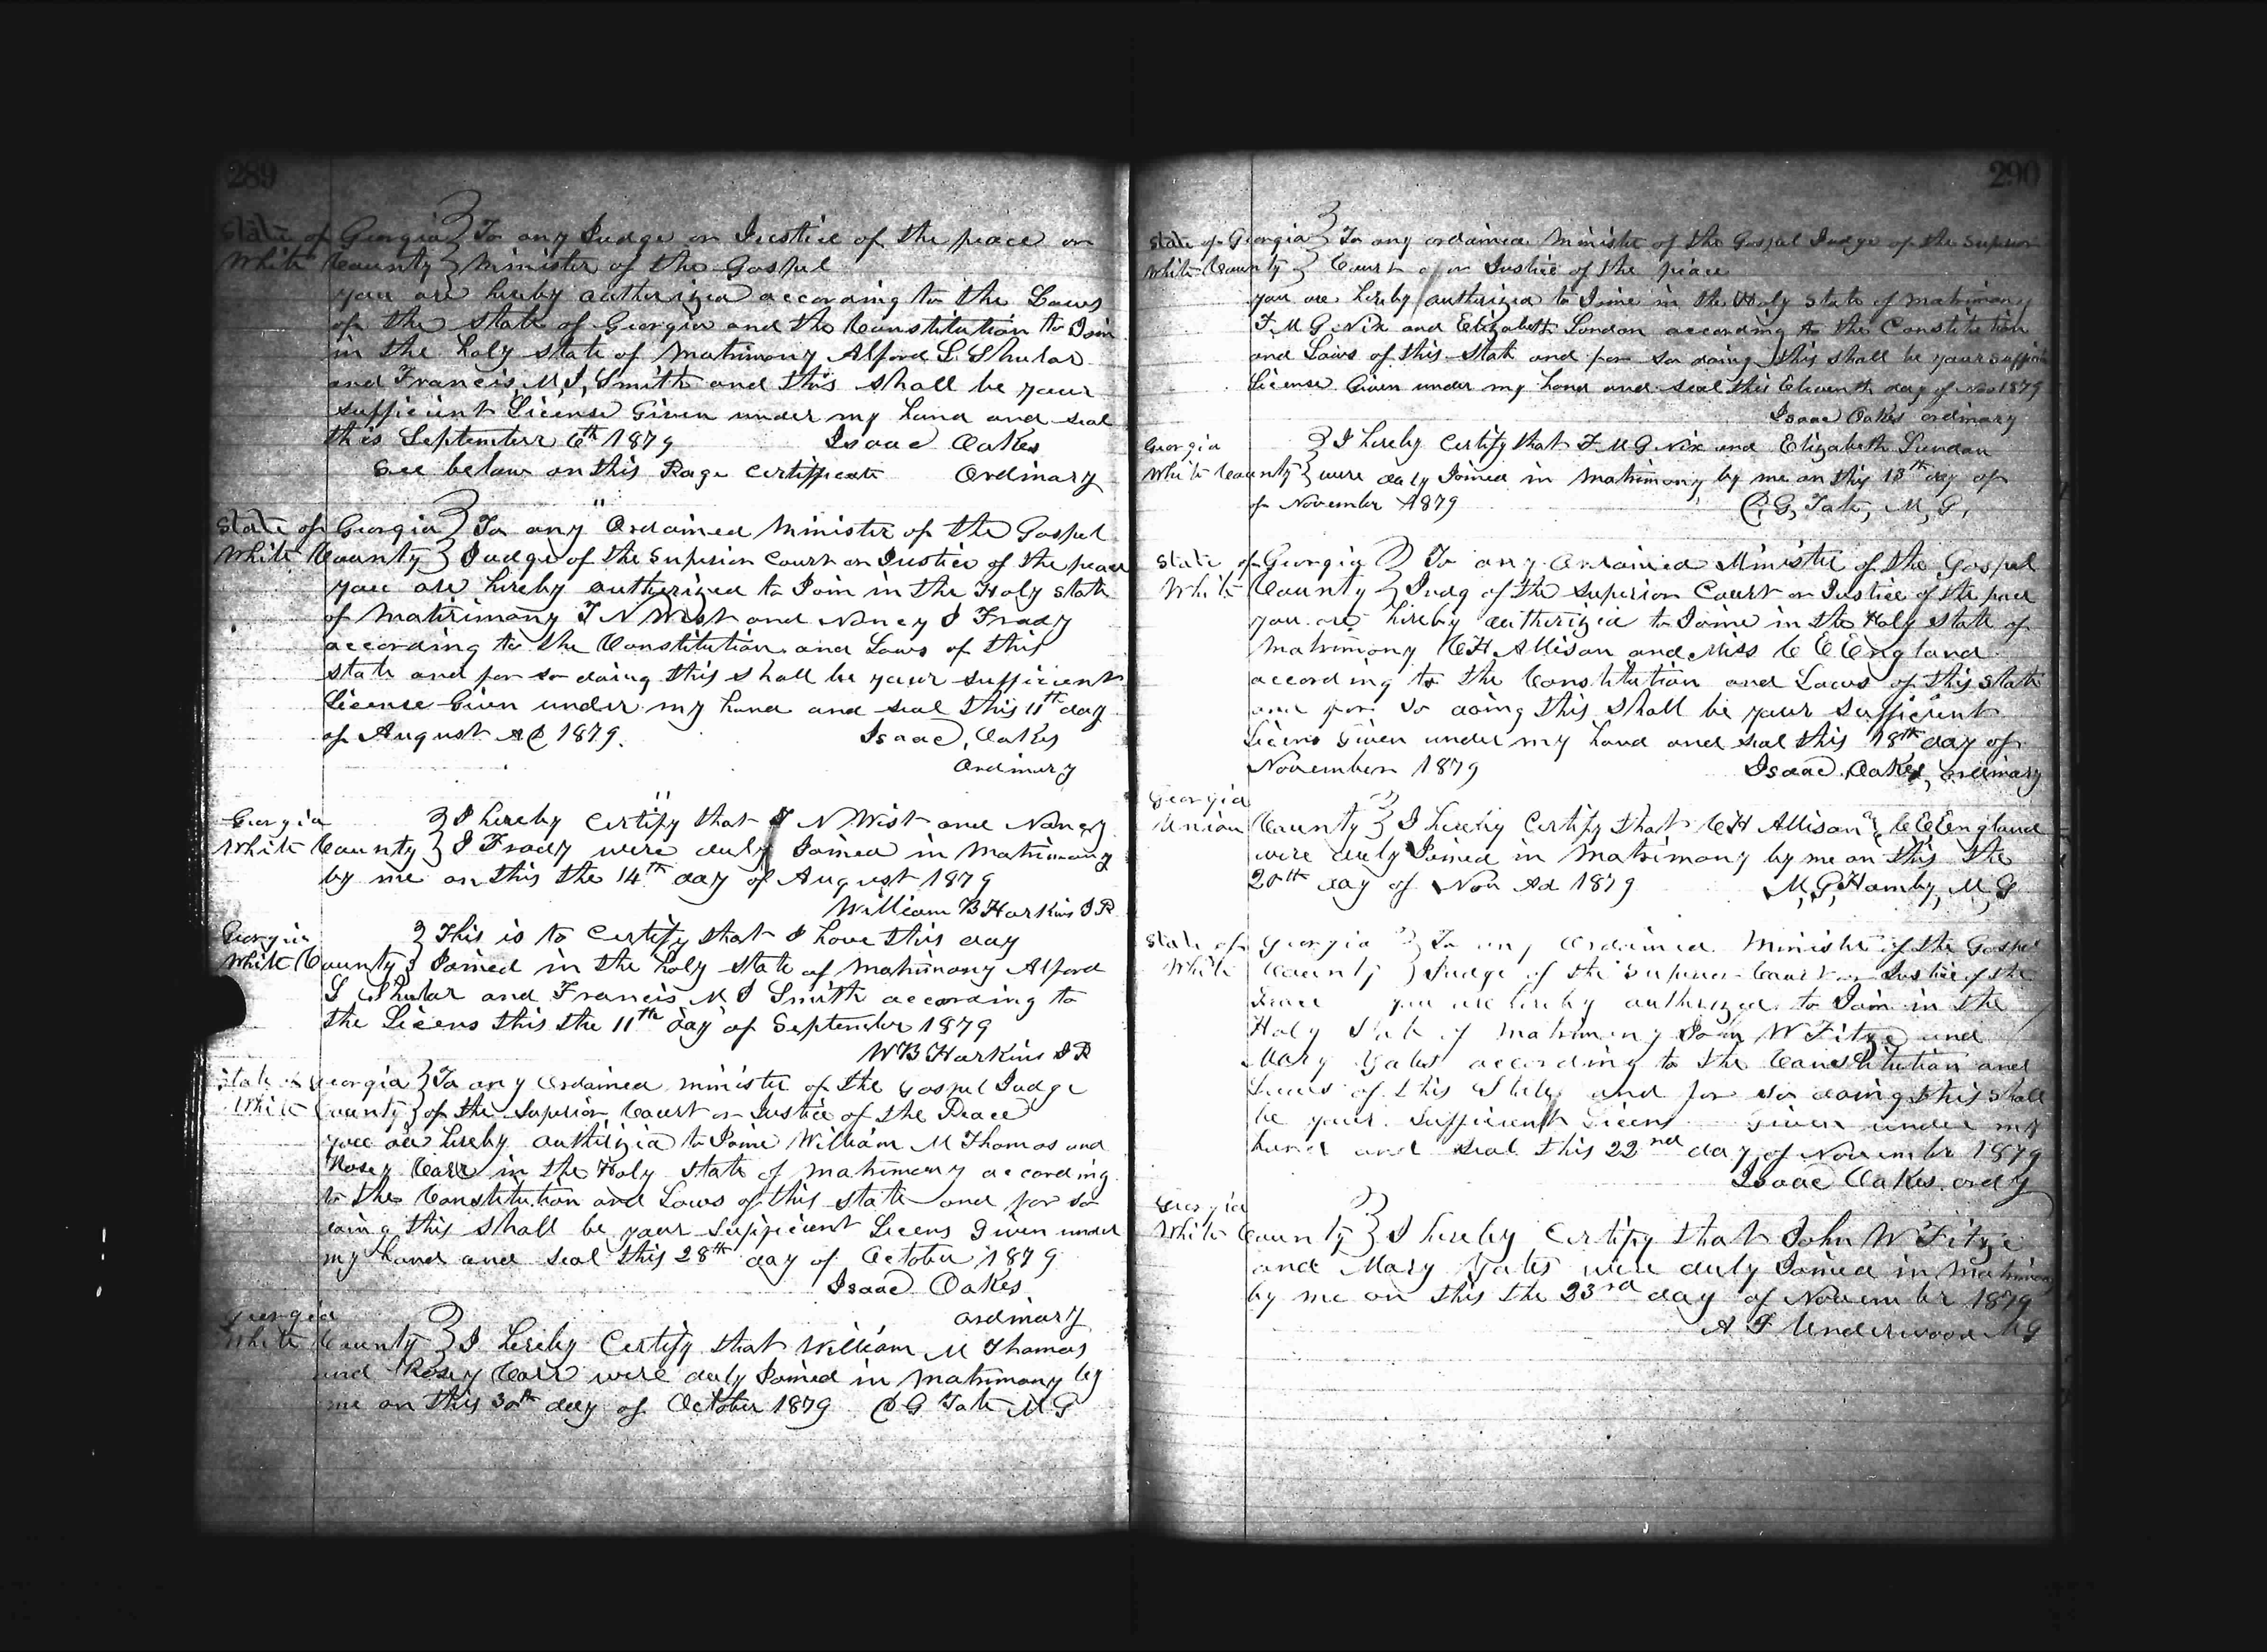 289
State of Georgia } To any Judge or Justice of the peace or
White County } Minister of the Gospel
you are hereby authorized according to the Laws
of the State of Georgia and the Constitution to Join
in the holy state of Matrimony Alford L Shular
and Francis M J Smith and this shall be your
sufficient License Given under my hand and seal
this September 6th 1879 Isaac Oakes
See below on this Page Certifficate Ordinary
State of Georgia } To any Ordained Minister of the Gospel
White County } Judge of the Superior Court or Justice of the peace
you are hereby authorized to Join in the Holy state
of Matrimony T N West and Nancy J Frady
according to the Constitution and Laws of this
State and for so doing this shall be your sufficient
License Given under my hand and seal this 11th day
of August AD 1879. Isaac Oakes
Ordinary
Georgia } I hereby Certify that T N West and Nancy
White County } J Frady were duly Joined in Matrimony
by me on this the 14th day of August 1879
William B Harkins J P
Georgia } This is to Certify that I have this day
White County } Joined in the holy state of Matrimony Alford
L Shular and Francis M J Smith according to
the Licens this the 11th day of September 1879
W B Harkins J P
State of Georgia } To any Ordained minister of the Gospel Judge
White County } of the Superior Court or Justice of the Peace
you are hereby authorized to Joine William M Thomas and
Rosey Carr in the Holy State of Matrimony according
to the Constitution and Laws of this state and for so
doing this shall be your Sufficient Licens Given under
my hand and seal this 28th day of October 1879
Isaac Oakes
ordinary
Georgia
White County } I hereby Certify that William M Thomas
and Rosey Carr were duly Joined in Matrimony by
me on this 30th day of October 1879 C G Tate M G
290
State of Georgia } To any ordained Minister of the Gospel Judge of the Superior
White County } Court or Justice of the peace
you are hereby authorized to Joine in the Holy State of Matrimony
F M G Nix and Elizabeth London according to the Constitution
and Laws of this State and for so doing this shall be your suffici
License Given under my hand and seal this Eleventh day of Nov 1879
Isaac Oakes ordinary
Georgia } I hereby Certify that F M G Nix and Elizabeth Lundon
White County } were duly Joined in Matrimony by me on this 13th day of
of November 1879 C, G, Tate, M, G,
State of Georgia } To any Ordained Minister of the Gospel
White County } Judg of the Superior Court or Justice of the peace
you are hereby authorized to Joine in the Holy State of
Matrimony C H Allison and Miss C E England
according to the Constitution and Laws of this State
and for so doing this shall be your sufficient
Licens Given under my hand and seal this 18th day of
November 1879 Isaac Oakes, ordinary
Georgia
Union County } I hereby Certify that C H Allison & C E England
were duly Joined in Matrimony by me on this the
20th day of Nov Ad 1879 M, G, Hamby, M, G
State of Georgia } To any Ordained Minister of the Gospel
White County } Judge of the Superior Court or Justice of the
Peace you are hereby authorized to Join in the
Holy State of Matrimony John W Fitze and
Mary Yates according to the Constitution and
Laws of this State and for so doing this shall
be your Sufficient Licens Given under my
hand and seal this 22nd day of November 1879
Isaac Oakes ordy
Georgia
White County } I hereby Certify that John W Fitze
and Mary Yates were duly Joined in Matrimony
by me on this the 23rd day of November 1879
A F Underwood M G